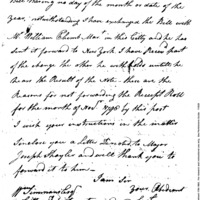 Bill having no day of the month or date of the
year, notwithstanding I have exchanged the Bill with
Mr William in this Citty and he has
sent it forward to New York I have Received part
of the change the other he withholds untill he
hears the Result of the Note. these are the
Reasons for not forwarding the Receipt Roll
for the month of Novr 1796 by this post
I wish your instructions in the matter
Inclose you a Letter directed to Major
Joseph Shaylor and will thank you to
forward it to him
I am Sir
your Obedient